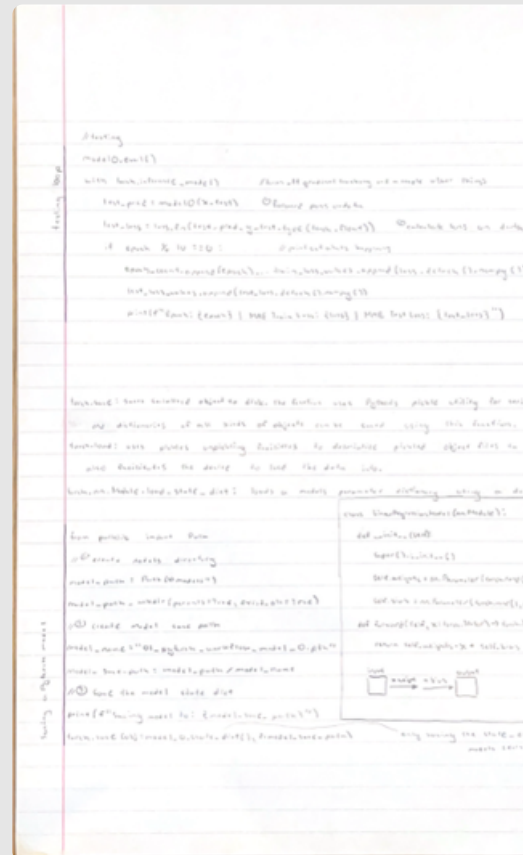 testing loop
// testing
model0.eval()
with torch.inference_mode() // turn off gradient tracking and a couple other things
test_pred = model0(x_test) ① forward pass
test_loss = loss_fn(test_pred, y_test.type(torch.float)) ② calculate loss on
if epoch % 10 == 0: // print out what's happening
epoch_count.append(epoch) train_loss_values.append(loss.detach().numpy())
test_loss_values.append(test_loss.detach().numpy())
print(f"Epoch: {epoch} | MAE Train Loss: {loss} | MAE Test Loss: {test_loss}")
torch.save: saves serialized object to disk. the function uses Python's pickle utility for
dictionaries of all kinds of objects can be saved using this function.
torch.load: uses pickle's unpickling facilities to deserialize pickled object files to
the device to load the data into.
torch.nn.Module.load_state_dict: loads a model's parameter dictionary using a
saving a PyTorch model
from pathlib import Path
// ① create models directory
model_path = Path("models")
model_path.mkdir(parents=True, exist_ok=True)
// ② create model save path
model_name = "01_pytorch_workflow_model_0.pth"
model_save_path = model_path / model_name
// ③ save the model state dict
print(f"Saving model to: {model_save_path}")
torch.save(obj=model_0.state_dict(), f=model_save_path)
only saving the state_
class LinearRegressionModel(nn.Module):
def __init__(self)
super().__init__()
self.weights = nn.Parameter(torch.
self.bias = nn.Parameter(torch.
def forward(self, x: torch.Tensor) →
return self.weights * x + self.bias
input
weight + bias
output